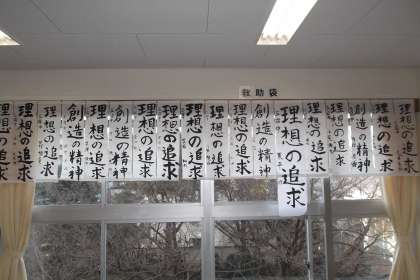 救助袋
理想の追求
理想の追求
理想の追求
創造の精神
理想の追求
創造の精神
理想の追求
理想の追求
理想の追求
理想の追求
理想の追求
創造の精神
理想の追求
理想の追求
理想の追求
創造の精神
理想の追求
理想の追求